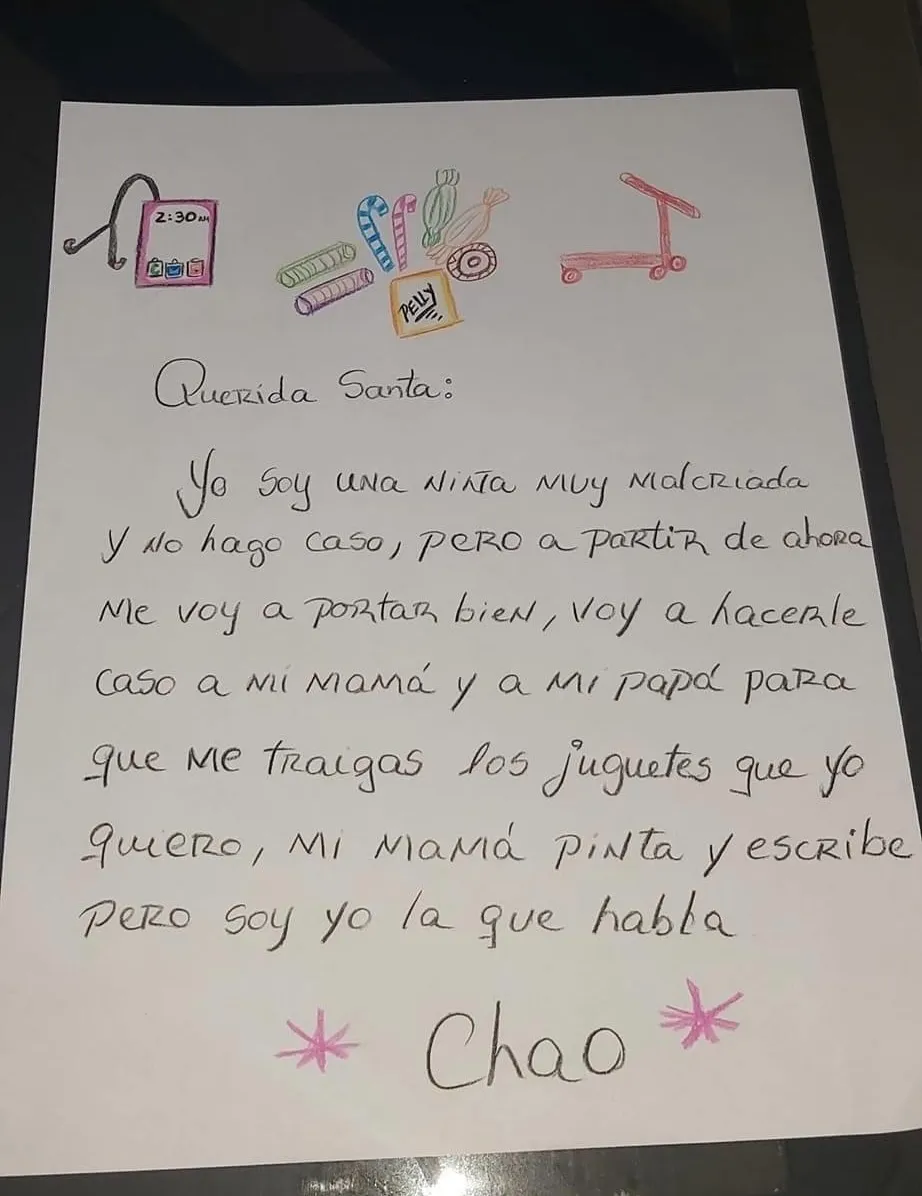 2:30 AM
PELLY
Querida Santa:
Yo soy una niña muy malcriada
y no hago caso, pero a partir de ahora
me voy a portar bien, voy a hacerle
caso a mi mamá y a mi papá para
que me traigas los juguetes que yo
quiero, mi mamá pinta y escribe
pero soy yo la que habla
Chao